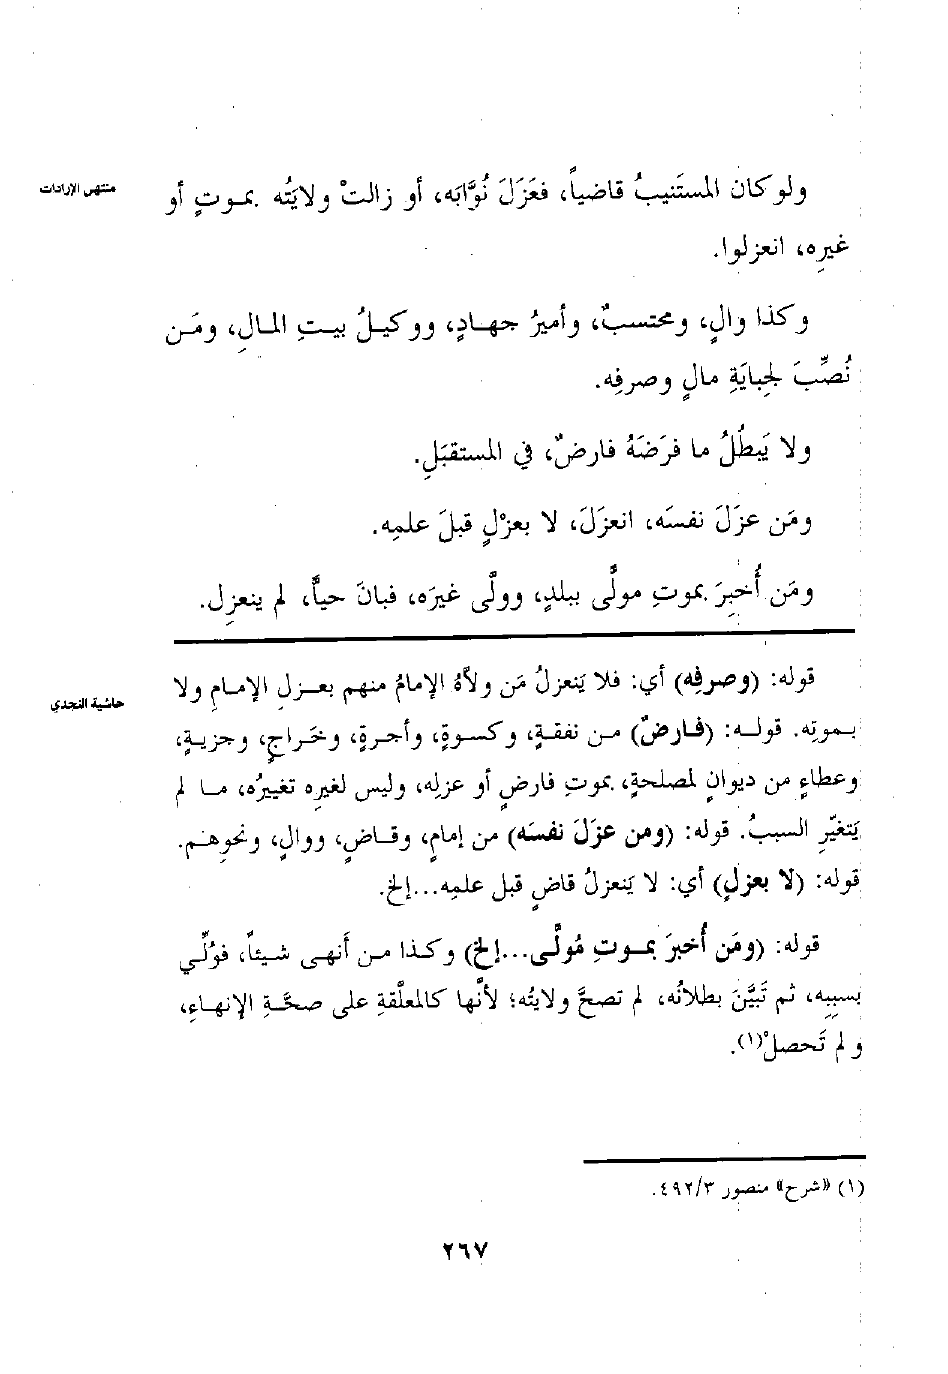 منتهى الإرادات
ولو كان المستَنيبُ قاضياً، فعَزَلَ نُوَّابَه، أو زالتْ ولايتُه بموتٍ أو
غيرِه، انعزلوا.
وكذا والٍ، ومحتسبٌ، وأميرُ جهادٍ، ووكيلُ بيتِ المالِ، ومَن
نُصِّبَ لجِبايَةِ مالٍ وصرفِه.
ولا يَبطُلُ ما فرَضَهُ فارضٌ، في المستقبَلِ.
ومَن عزَلَ نفسَه، انعزَلَ، لا بعزْلٍ قبلَ علمِه.
ومَن أُخبِرَ بموتِ مولًّى ببلدٍ، وولَّى غيرَه، فبانَ حياًّ، لم ينعزِل.
حاشية النجدي
قوله: (وصرفِه) أي: فلا يَنعزلُ مَن ولاَّهُ الإمامُ منهم بعزلِ الإمامِ ولا
بموتِه. قوله: (فارضٌ) من نفقةٍ، وكسوةٍ، وأجرةٍ، وخَراجٍ، وجزيةٍ،
وعطاءٍ من ديوانٍ لمصلحةٍ، بموتِ فارضٍ أو عزلِه، وليس لغيرِه تغييرُه، ما لم
يَتغيَّرِ السببُ. قوله: (ومن عزَلَ نفسَه) من إمامٍ، وقاضٍ، ووالٍ، ونحوِهم.
قوله: (لا بعزلٍ) أي: لا يَنعزلُ قاضٍ قبل علمِه...إلخ.
قوله: (ومَن أُخبرَ بموتِ مُولًّى...إلخ) وكذا من أَنهى شيئاً، فوُلِّي
بسببِه، ثم تَبيَّنَ بطلانُه، لم تصحَّ ولايتُه؛ لأنَّها كالمعلَّقةِ على صحَّةِ الإنهاءِ،
ولم تَحصلْ(١).
(١) «شرح» منصور ٤٩٢/٣.
٢٦٧